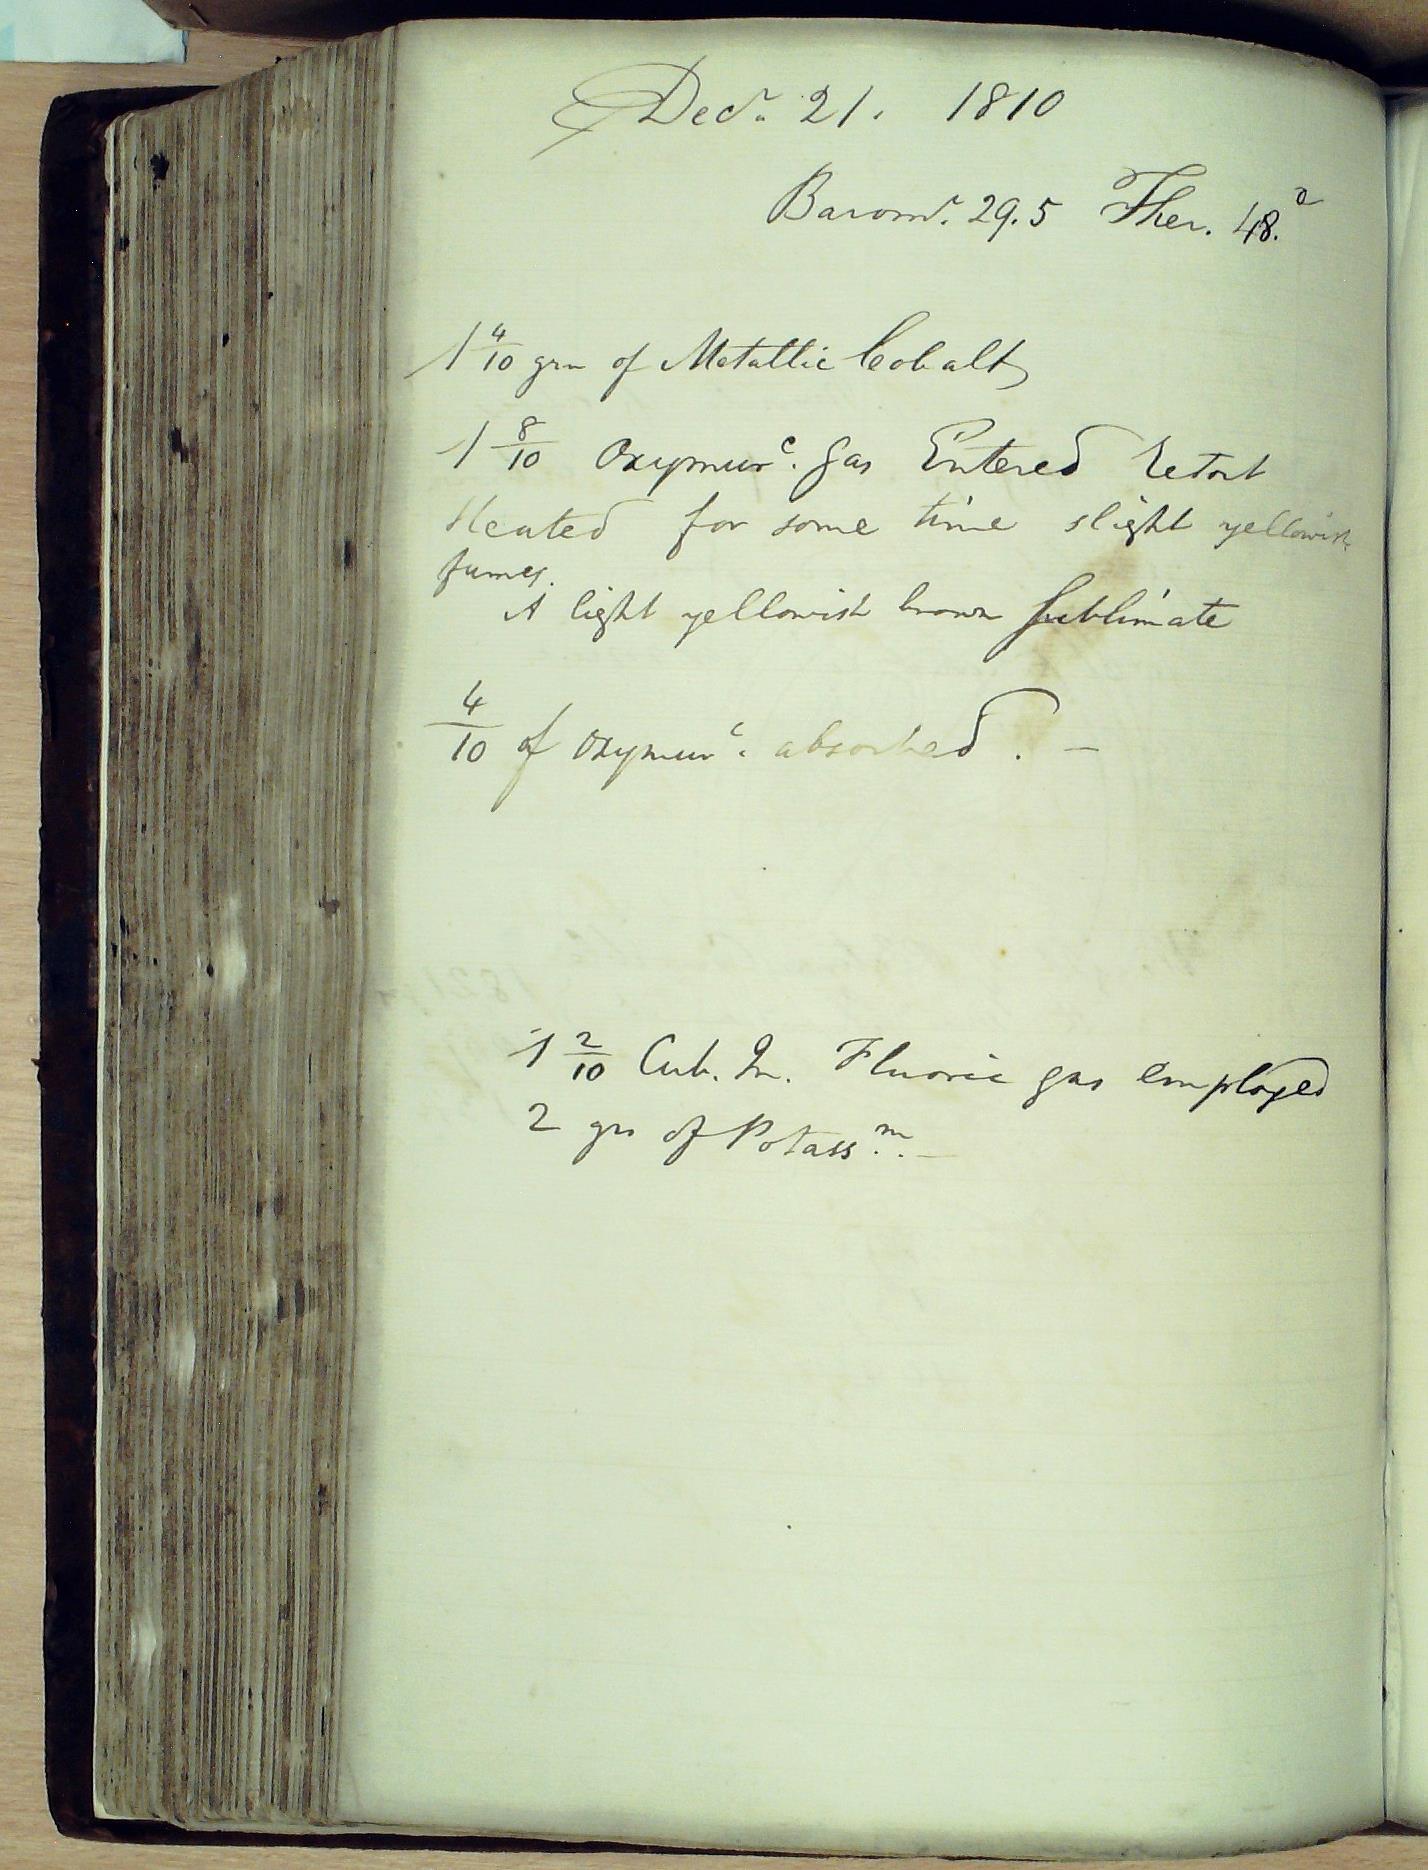 Decr. 21. 1810
Baromr. 29.5 Ther. 48.o
1 4/10 grn of Metallic Cobalt
1 8/10 Oxymurc. gas Entered retort
Heated for some time slight yellowish
fumes.
A light yellowish brown sublimate
4/10 of oxymurc. absorbed. –
1 2/10 Cub. In. Fluoric gas employed
2 grs of Potassm. –